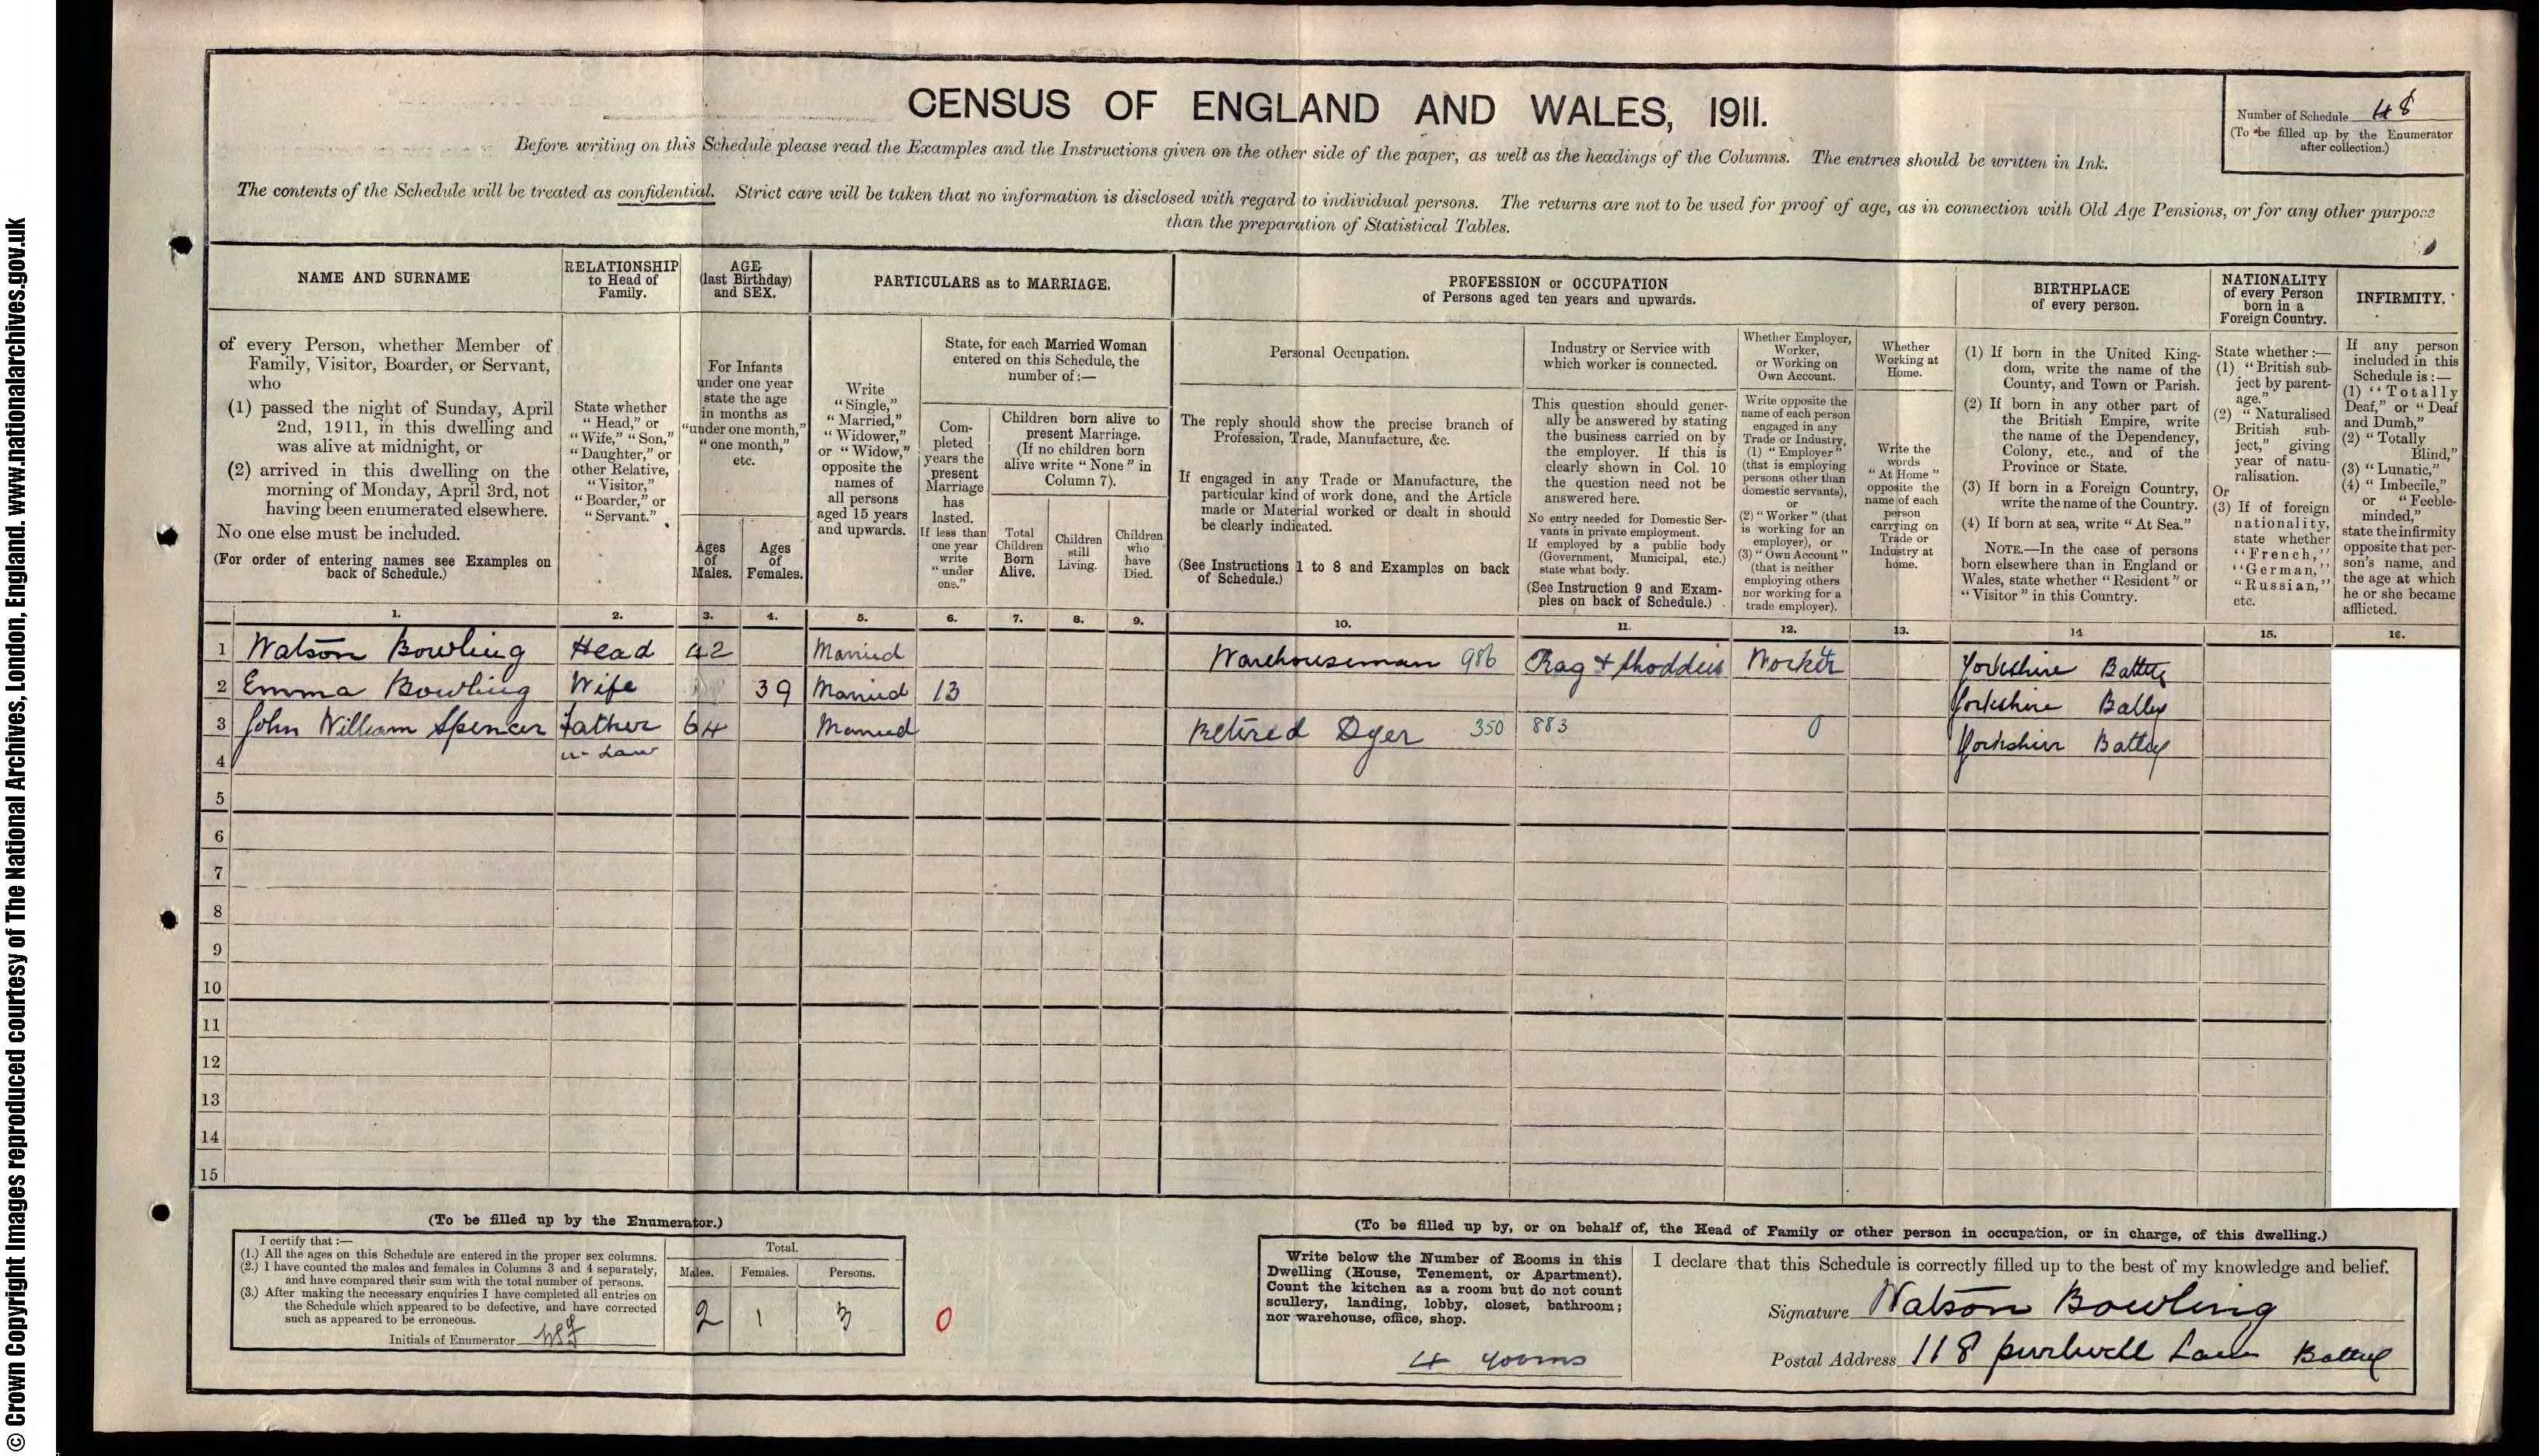 CENSUS OF ENGLAND AND WALES, 1911.
Number of Schedule 48
(To be filled up by the Enumerator
after collection.)
Before writing on this Schedule please read the Examples and the Instructions given on the other side of the paper, as well as the headings of the Columns. The entries should be written in Ink.
The contents of the Schedule will be treated as confidential. Strict care will be taken that no information is disclosed with regard to individual persons. The returns are not to be used for proof of age, as in connection with Old Age Pensions, or for any other purpose
than the preparation of Statistical Tables.
NAME AND SURNAME
of every Person, whether Member of
Family, Visitor, Boarder, or Servant,
who
(1) passed the night of Sunday, April
2nd, 1911, in this dwelling and
was alive at midnight, or
(2) arrived in this dwelling on the
morning of Monday, April 3rd, not
having been enumerated elsewhere.
No one else must be included.
(For order of entering names see Examples on
back of Schedule.)
RELATIONSHIP
to Head of
Family.
State whether
"Head," or
"Wife," "Son,"
"Daughter," or
other Relative,
"Visitor,"
"Boarder," or
"Servant."
AGE
(last Birthday)
and SEX.
For Infants
under one year
state the age
in months as
"under one month,"
"one month,"
etc.
Ages
of
Males.
Ages
of
Females.
PARTICULARS as to MARRIAGE.
Write
"Single,"
"Married,"
"Widower,"
or "Widow,"
opposite the
names of
all persons
aged 15 years
and upwards.
State, for each Married Woman
entered on this Schedule, the
number of:—
Com-
pleted
years the
present
Marriage
has
lasted.
If less than
one year
write
"under
one."
Children born alive to
present Marriage.
(If no children born
alive write "None" in
Column 7).
Total
Children
Born
Alive.
Children
still
Living.
Children
who
have
Died.
PROFESSION or OCCUPATION
of Persons aged ten years and upwards.
Personal Occupation.
The reply should show the precise branch of
Profession, Trade, Manufacture, &c.
If engaged in any Trade or Manufacture, the
particular kind of work done, and the Article
made or Material worked or dealt in should
be clearly indicated.
(See Instructions 1 to 8 and Examples on back
of Schedule.)
Industry or Service with
which worker is connected.
This question should gener-
ally be answered by stating
the business carried on by
the employer. If this is
clearly shown in Col. 10
the question need not be
answered here.
No entry needed for Domestic Ser-
vants in private employment.
If employed by a public body
(Government, Municipal, etc.)
state what body.
(See Instruction 9 and Exam-
ples on back of Schedule.)
Whether Employer,
Worker,
or Working on
Own Account.
Write opposite the
name of each person
engaged in any
Trade or Industry,
(1) "Employer"
(that is employing
persons other than
domestic servants),
or
(2) "Worker" (that
is working for an
employer), or
(3) "Own Account"
(that is neither
employing others
nor working for a
trade employer).
Whether
Working at
Home.
Write the
words
"At Home"
opposite the
name of each
person
carrying on
Trade or
Industry at
home.
BIRTHPLACE
of every person.
(1) If born in the United King-
dom, write the name of the
County, and Town or Parish.
(2) If born in any other part of
the British Empire, write
the name of the Dependency,
Colony, etc., and of the
Province or State.
(3) If born in a Foreign Country,
write the name of the Country.
(4) If born at sea, write "At Sea."
NOTE.—In the case of persons
born elsewhere than in England or
Wales, state whether "Resident" or
"Visitor" in this Country.
NATIONALITY
of every Person
born in a
Foreign Country.
State whether:—
(1) "British sub-
ject by parent-
age."
(2) "Naturalised
British sub-
ject," giving
year of natu-
ralisation.
Or
(3) If of foreign
nationality,
state whether
"French,"
"German,"
"Russian,"
etc.
INFIRMITY.
If any person
included in this
Schedule is:—
(1) "Totally
Deaf," or "Deaf
and Dumb,"
(2) "Totally
Blind,"
(3) "Lunatic,"
(4) "Imbecile,"
or "Feeble-
minded,"
state the infirmity
opposite that per-
son's name, and
the age at which
he or she became
afflicted.
1. 2. 3. 4. 5. 6. 7. 8. 9. 10. 11. 12. 13. 14 15. 16.
1 Watson Bowling Head 42 Married Warehouseman 986 Rag & Shoddies Worker Yorkshire Batley
2 Emma Bowling Wife 39 Married 13 Yorkshire Batley
3 John William Spencer Father 64 Married Retired Dyer 350 883 0 Yorkshire Batley
in-Law
4
5
6
7
8
9
10
11
12
13
14
15
(To be filled up by the Enumerator.)
I certify that:—
(1.) All the ages on this Schedule are entered in the proper sex columns.
(2.) I have counted the males and females in Columns 3 and 4 separately,
and have compared their sum with the total number of persons.
(3.) After making the necessary enquiries I have completed all entries on
the Schedule which appeared to be defective, and have corrected
such as appeared to be erroneous.
Initials of Enumerator
Total.
Males. Females. Persons.
2 1 3
0
(To be filled up by, or on behalf of, the Head of Family or other person in occupation, or in charge, of this dwelling.)
Write below the Number of Rooms in this
Dwelling (House, Tenement, or Apartment).
Count the kitchen as a room but do not count
scullery, landing, lobby, closet, bathroom;
nor warehouse, office, shop.
4 rooms
I declare that this Schedule is correctly filled up to the best of my knowledge and belief.
Signature Watson Bowling
Postal Address 118 purlwell Lane Batley
© Crown Copyright Images reproduced courtesy of The National Archives, London, England. www.nationalarchives.gov.uk